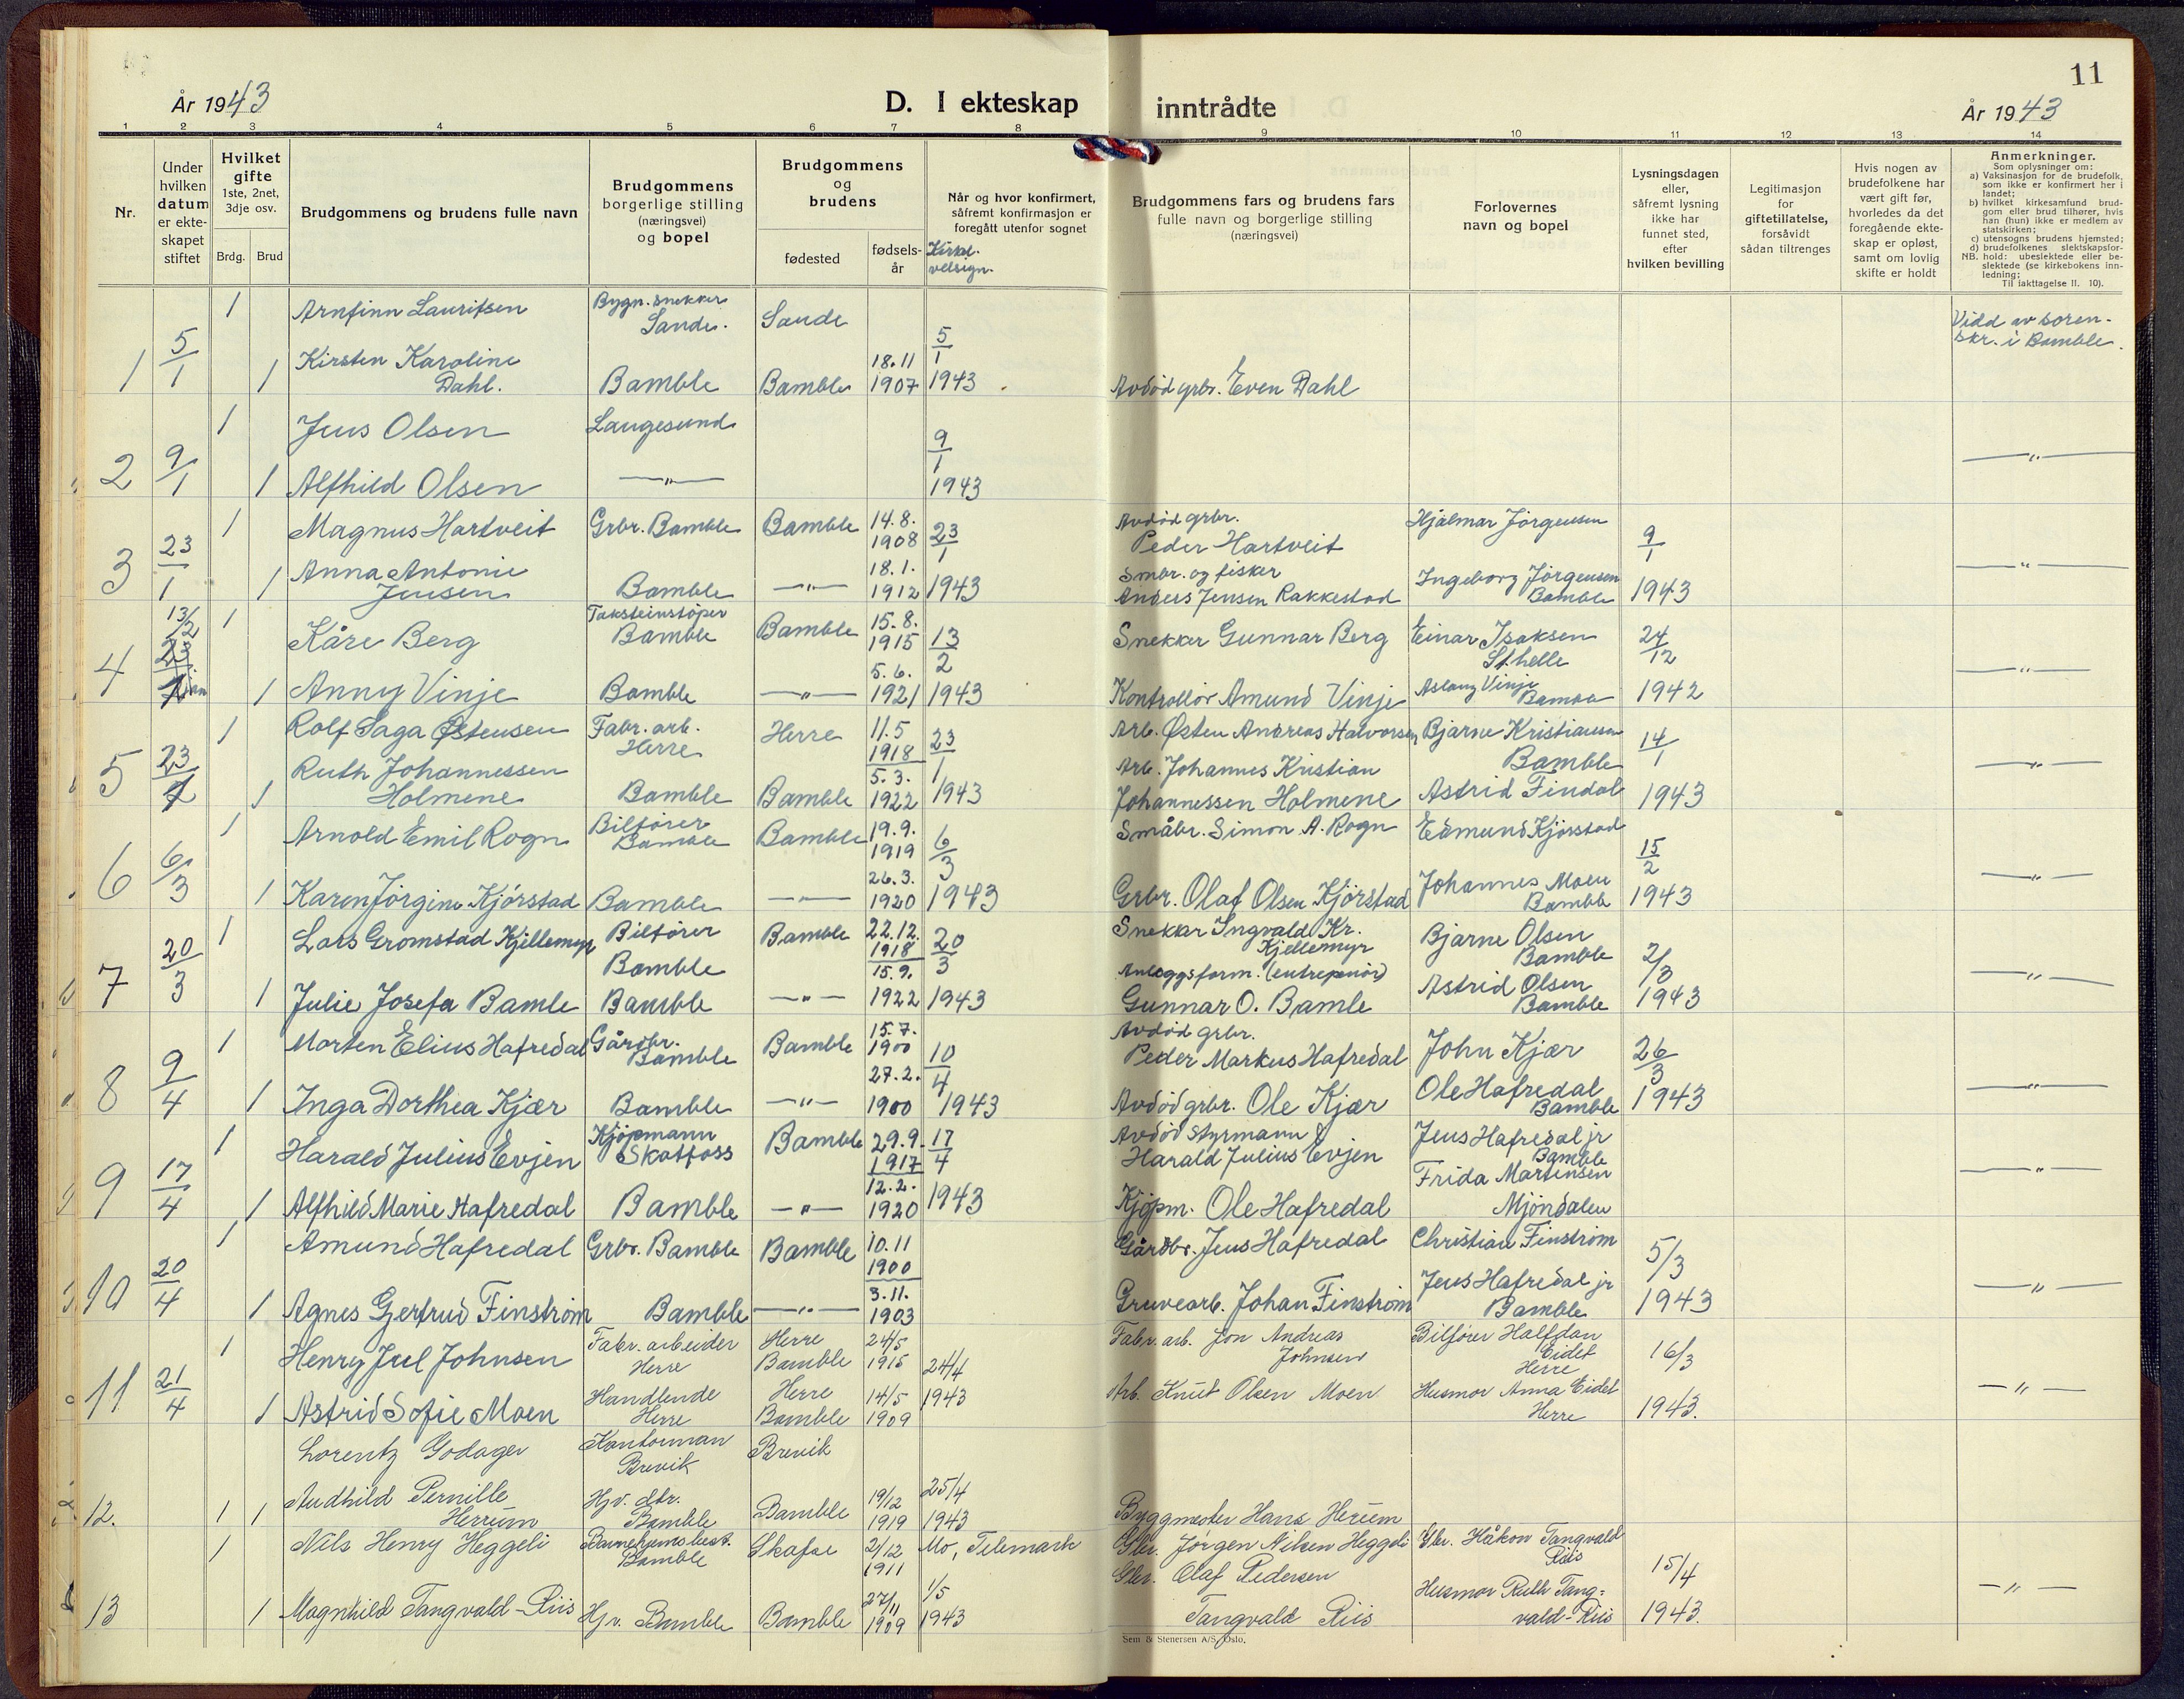 År 1943
D. I ekteskap
inntrådte
11
År 1943
1 2 3 4 5 6 7 8 9 10 11 12 13 14
Nr.
Under
hvilken
datum
er ekte-
skapet
stiftet
Hvilket
gifte
1ste, 2net,
3dje osv.
Brdg. Brud
Brudgommens og brudens fulle navn
Brudgommens
borgerlige stilling
(næringsvei)
og bopel
Brudgommens
og
brudens
fødested
fødsels-
år
Når og hvor konfirmert,
såfremt konfirmasjon er
foregått utenfor sognet
Kirkel.
velsign.
Brudgommens fars og brudens fars
fulle navn og borgerlige stilling
(næringsvei)
Forlovernes
navn og bopel
Lysningsdagen
eller,
såfremt lysning
ikke har
funnet sted,
efter
hvilken bevilling
Legitimasjon
for
giftetillatelse,
forsåvidt
sådan tiltrenges
Hvis nogen av
brudefolkene har
vært gift før,
hvorledes da det
foregående ekte-
skap er opløst,
samt om lovlig
skifte er holdt
Anmerkninger.
Som oplysninger om:
a) Vaksinasjon for de brudefolk,
som ikke er konfirmert her i
landet;
b) hvilket kirkesamfund brud-
gom eller brud tilhører, hvis
han (hun) ikke er medlem av
statskirken;
c) utensogns brudens hjemsted;
d) brudefolkenes slektskapsfor-
NB. hold: ubeslektede eller be-
slektede (se kirkebokens inn-
ledning;
Til iakttagelse II. 10).
1 Arnfinn Lauritsen Bygn. snekker
Sande. Sande
Vidd av soren-
skr. i Bamble.
1 5/1 1 Kirsten Karoline
Dahl. Bamble Bamble 18.11
1907 5/1
1943 Avdød grbr. Even Dahl
1 Jens Olsen Langesund
2 9/1 1 Alfhild Olsen —"— 9/1
1943 —"—
1 Magnus Hartveit Grbr. Bamble Bamble 14.8.
1908 23/1 Avdød grbr.
Peder Hartveit Hjalmar Jørgensen 9/1
3 23/1 1 Anna Antonie
Jensen Bamble —"— 18.1.
1912 1943 Smbr. og fisker
Anders Jensen Rakkestad Ingeborg Jørgensen
Bamble 1943 —"—
13/2 1 Kåre Berg Taksteinstøper
Bamble Bamble 15.8.
1915 13/2 Snekker Gunnar Berg Einar Isaksen
St.helle 24/12
4 23/1 1 Anny Vinje Bamble —"— 5.6.
1921 1943 Kontrollør Amund Vinje Aslaug Vinje
Bamble 1942 —"—
1 Rolf Saga Østensen Fabr. arb.
Herre Herre 11.5
1918 23/1 Arb. Østen Andreas Halvorsen Bjarne Kristiansen
Bamble 14/1
5 23/1 1 Ruth Johannessen
Holmene Bamble Bamble 5.3.
1922 1943 Arb. Johannes Kristian
Johannessen Holmene Astrid Findal 1943 —"—
1 Arnold Emil Rogn Bilfører
Bamble Bamble 19.9.
1919 6/3 Småbr. Simon A. Rogn Edmund Kjørstad 15/2
6 6/3 1 Karen Jørgine Kjørstad Bamble —"— 26.3.
1920 1943 Grbr. Olaf Olsen Kjørstad Johannes Moen
Bamble 1943 —"—
1 Lars Gromstad Kjellemyr Bilfører
Bamble Bamble 22.12.
1918 20/3 Snekker Ingvald Kr.
Kjellemyr Bjarne Olsen
Bamble 2/3
7 20/3 1 Julie Josefa Bamle Bamble —"— 15.9.
1922 1943 Anleggsform. (entrepenør)
Gunnar O. Bamle Astrid Olsen
Bamble 1943 —"—
1 Morten Elius Hafredal Gårdbr.
Bamble Bamble 15.7.
1900 10/4 Avdød grbr.
Peder Markus Hafredal John Kjær 26/3
8 9/4 1 Inga Dorthea Kjær Bamble —"— 27.2.
1900 1943 Avdød grbr. Ole Kjær Ole Hafredal
Bamble 1943 —"—
1 Harald Julius Evjen Kjøpmann
Skotfoss Bamble 29.9.
1917 17/4 Avdød styrmann
Harald Julius Evjen Jens Hafredal jr
Bamble
9 17/4 1 Alfhild Marie Hafredal Bamble —"— 12.2.
1920 1943 Kjøpm. Ole Hafredal Frida Martinsen
Mjøndalen —"—
1 Amund Hafredal Grbr. Bamble Bamble 10.11
1900 Gårdbr. Jens Hafredal Christian Finstrøm 5/3
10 20/4 1 Agnes Gertrud Finstrøm Bamble —"— 3.11.
1903 Gruvearb. Johan Finstrøm Jens Hafredal jr
Bamble 1943 —"—
1 Henry Juel Johnsen Fabr. arbeider
Herre Herre
Bamble 24/5
1915 24/4 Fabr. arb. Jon Andreas
Johnsen Bilfører Halfdan
Eidet
Herre 16/3
11 21/4 1 Astrid Sofie Moen Handlende
Herre Herre
Bamble 14/5
1909 1943 Arb. Knut Olsen Moen Husmor Anna Eidet
Herre 1943. —"—
Lorentz Godager Kontorman
Brevik Brevik
12. 1 1 Audhild Pernille
Herrum Hjv. dtr.
Bamble Bamble 19/12
1919 25/4
1943 Byggmester Hans Herum
1 Nils Henry Heggeli Barnehjemsbest.
Bamble Skafse 2/12
1911 Mo, Telemark Gbr. Jørgen Nilsen Heggeli Gbr. Håkon Tangvald
Riis 15/4
13 1 Magnhild Tangvald-Riis Hjv. Bamble Bamble 27/11
1909 1/5
1943 Gbr. Olaf Pedersen
Tangvald Riis Husmor Ruth Tang-
vald-Riis 1943. —"—
Sem & Stenersen A/S, Oslo.